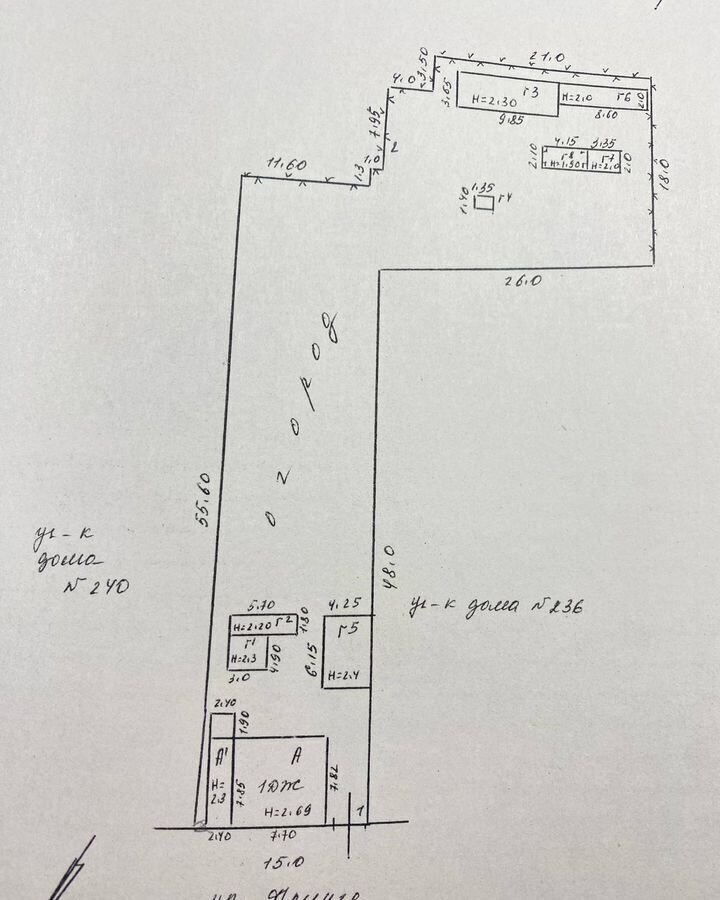 21.0
3.50
4.0
г3
H=2.30
3.65
9.85
H=2.0 г6
2.0
8.60
7.95
2
1.0
1.3
11.60
4.15 3.35
2.10
г8
H=1.50
г7
H=2.0
2.0
18.0
1.35
1.40
г4
26.0
огород
55.60
48.0
уч-к
дома
№ 240
уч-к дома № 236
5.70
H=2.20 г2
1.80
г1
H=2.3
4.90
3.0
4.25
г5
6.15
H=2.4
2.40
1.90
A1
H=
2.3
7.85
A
1ЭЖ
H=2.69
7.82
1
2.40
7.70
15.0
ул.